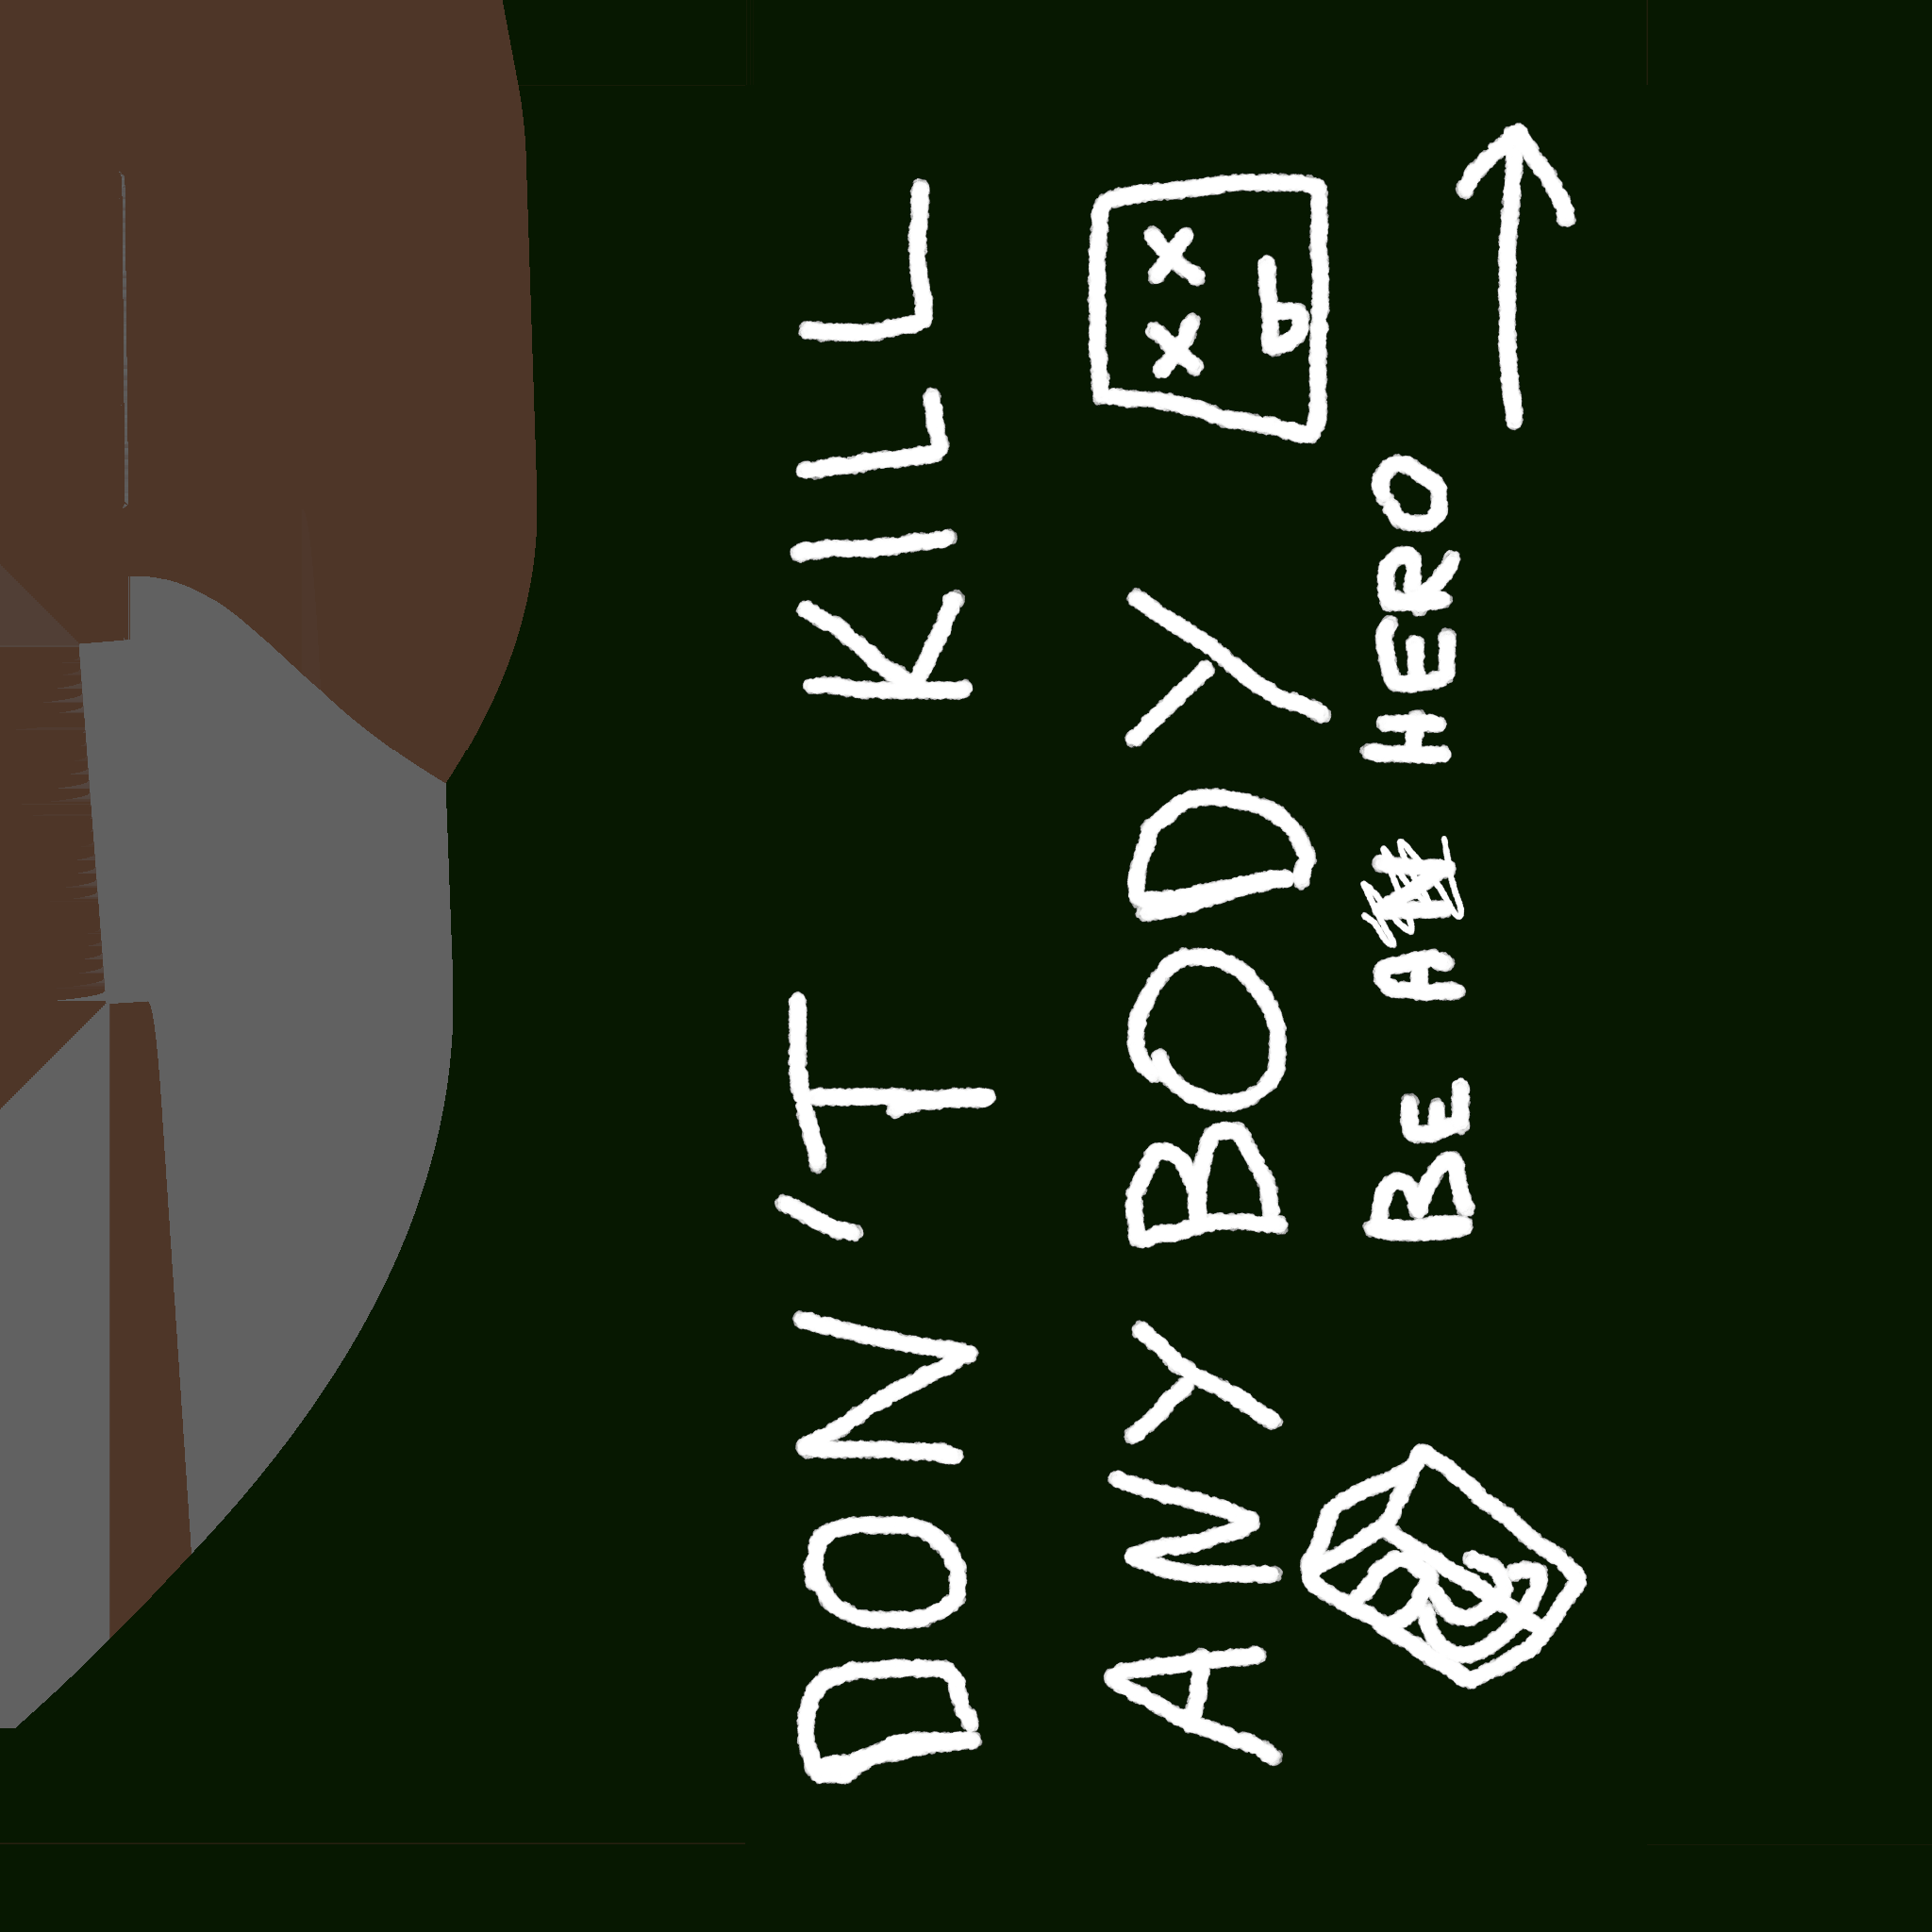 DON'T KILL
ANY BODY
BE A HERO